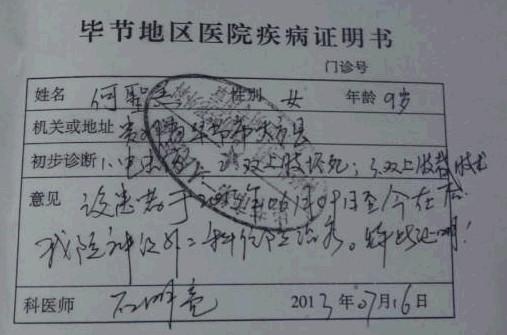 毕节地区医院疾病证明书
门诊号
姓名 何 性别 女 年龄 9岁
机关或地址 贵州省毕节市大方县
初步诊断 1、电 2、双上肢坏死；3、双上肢
意见 该患者于2013年06月09日至今在
我院神经外二科住院治疗。特此证明！
科医师 石明亮 2013年07月16日